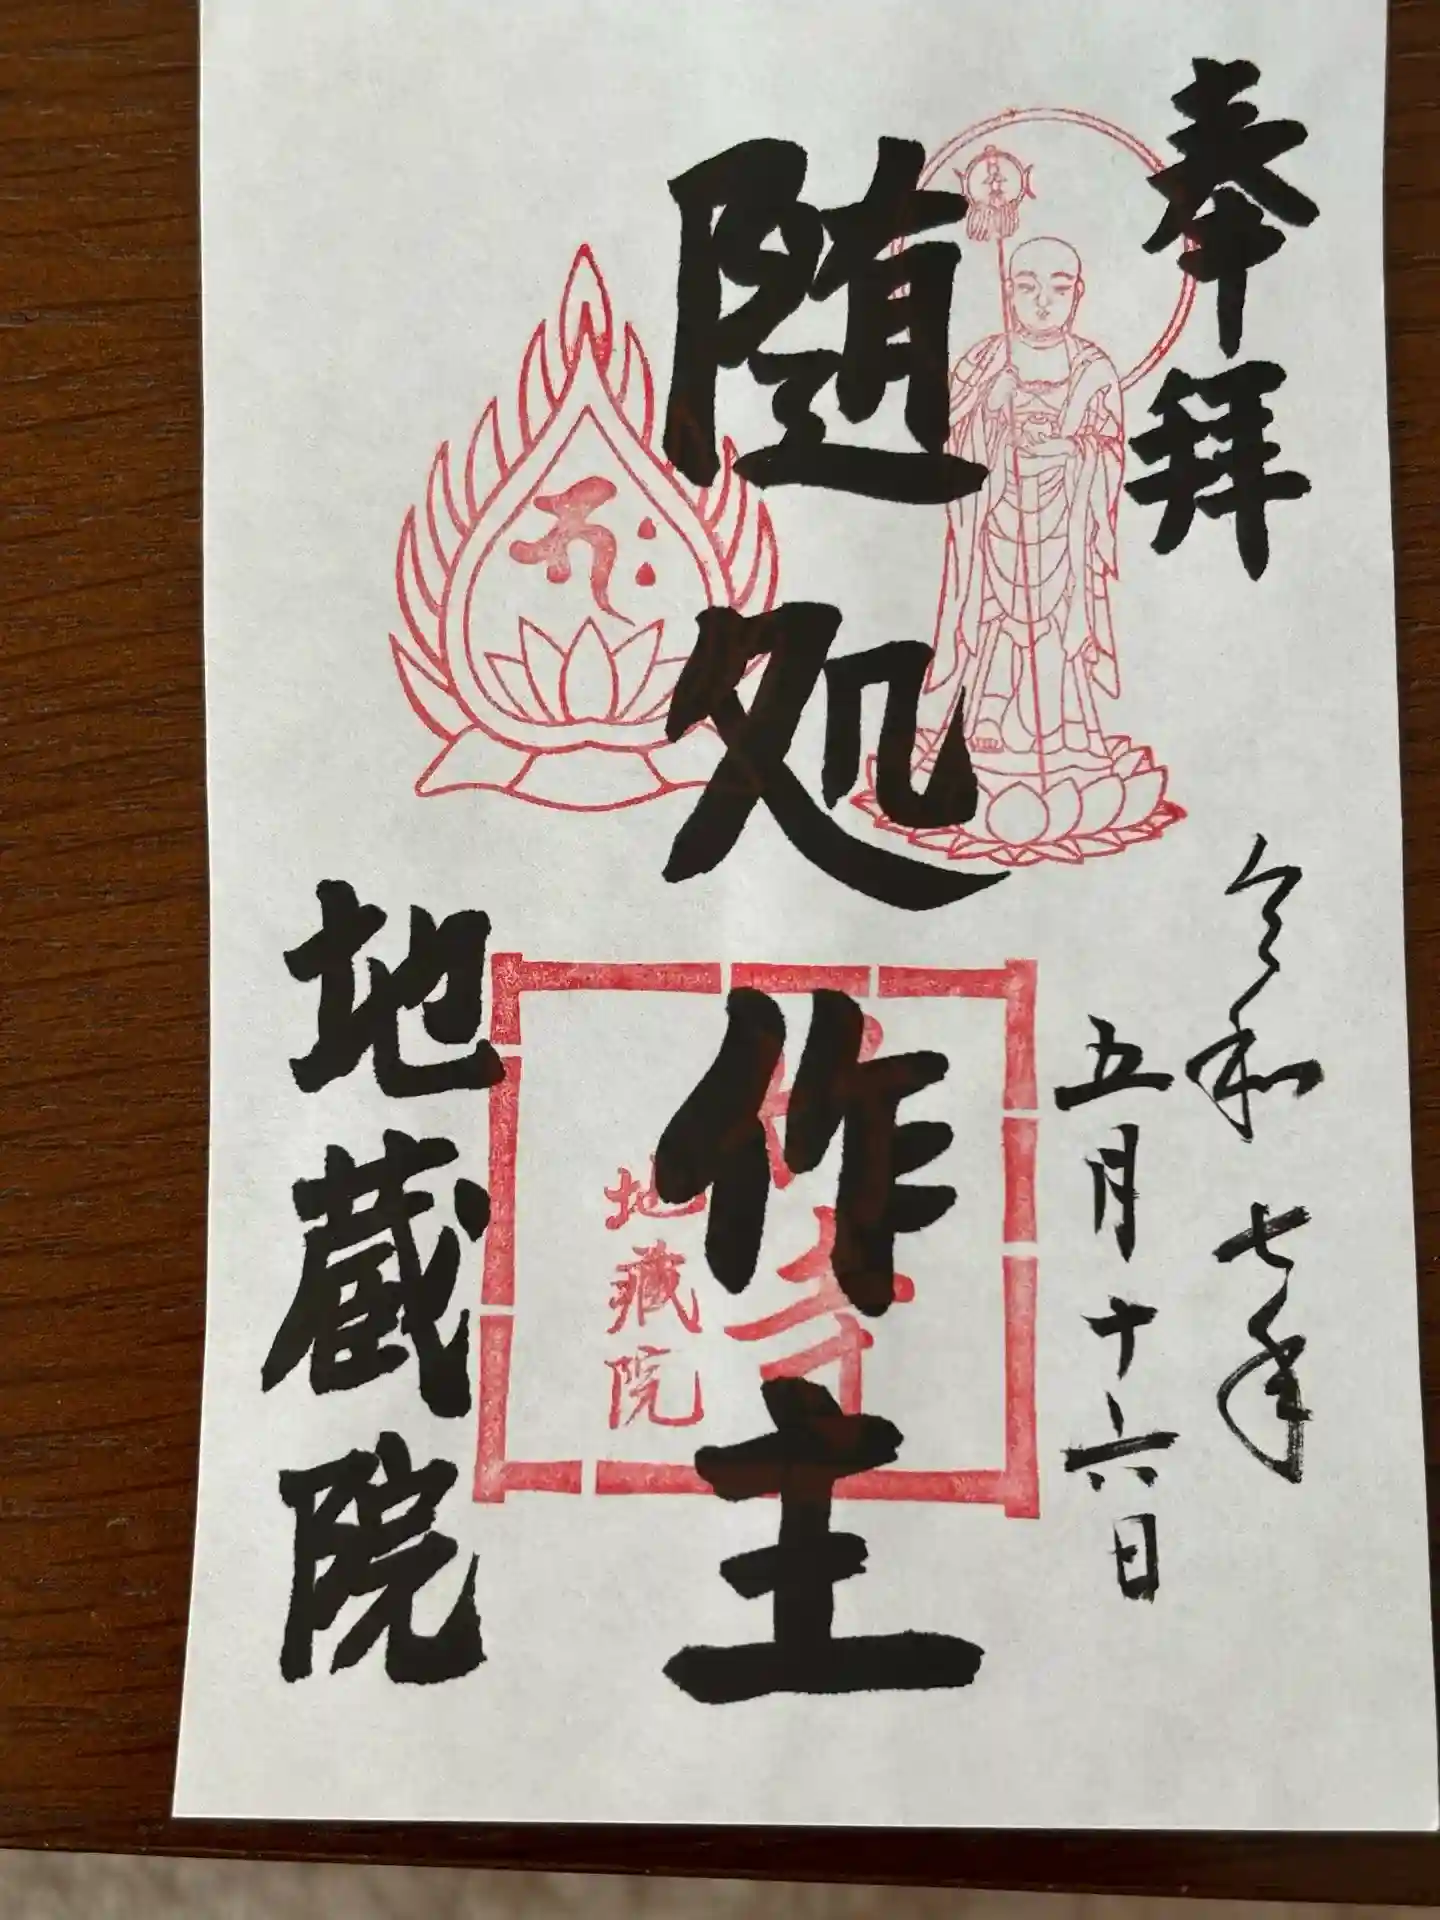 奉拝
令和七年
五月十六日
随処作主
寺
地藏院
地蔵院